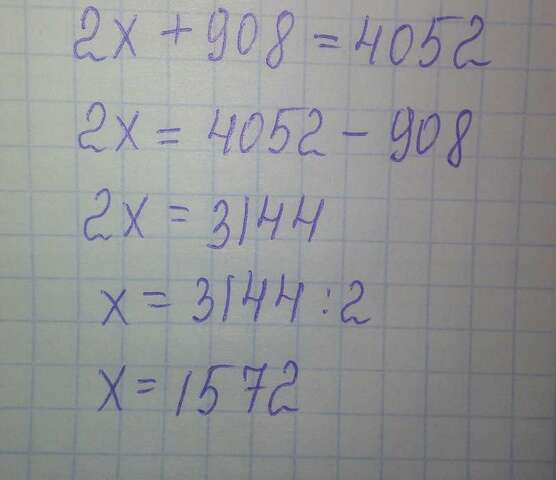 2x + 908 = 4052
2x = 4052 - 908
2x = 3144
x = 3144 : 2
x = 1572